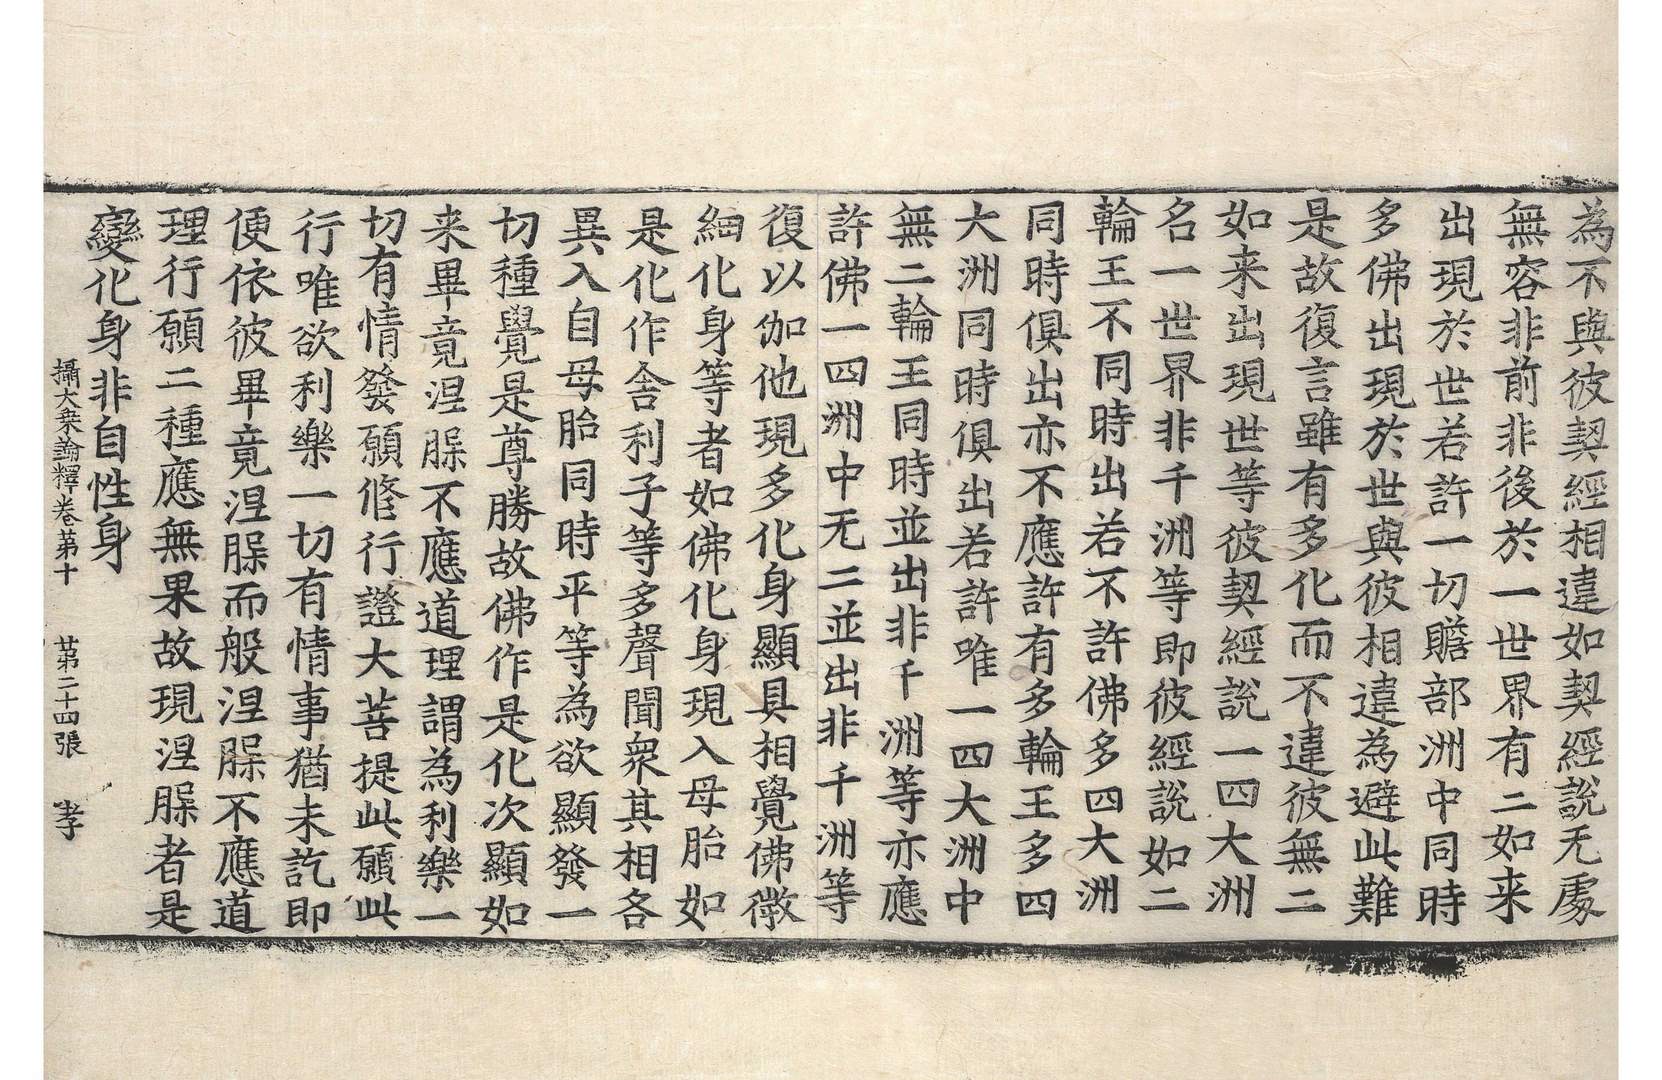 為不與彼契經相違如契經說无處
無容非前非後於一世界有二如来
出現於世若許一切贍部洲中同時
多佛出現於世與彼相違為避此難
是故復言雖有多化而不違彼無二
如来出現世等彼契經說一四大洲
名一世界非千洲等即彼經說如二
輪王不同時出若不許佛多四大洲
同時俱出亦不應許有多輪王多四
大洲同時俱出若許唯一四大洲中
無二輪王同時並出非千洲等亦應
許佛一四洲中无二並出非千洲等
復以伽他現多化身顯具相覺佛微
細化身等者如佛化身現入母胎如
是化作舍利子等多聲聞眾其相各
異入自母胎同時平等為欲顯發一
切種覺是尊勝故佛作是化次顯如
来畢竟涅槃不應道理謂為利樂一
切有情發願修行證大菩提此願此
行唯欲利樂一切有情事猶未訖即
便依彼畢竟涅槃而般涅槃不應道
理行願二種應無果故現涅槃者是
變化身非自性身
攝大乗論釋卷第十 苐二十四張 孝